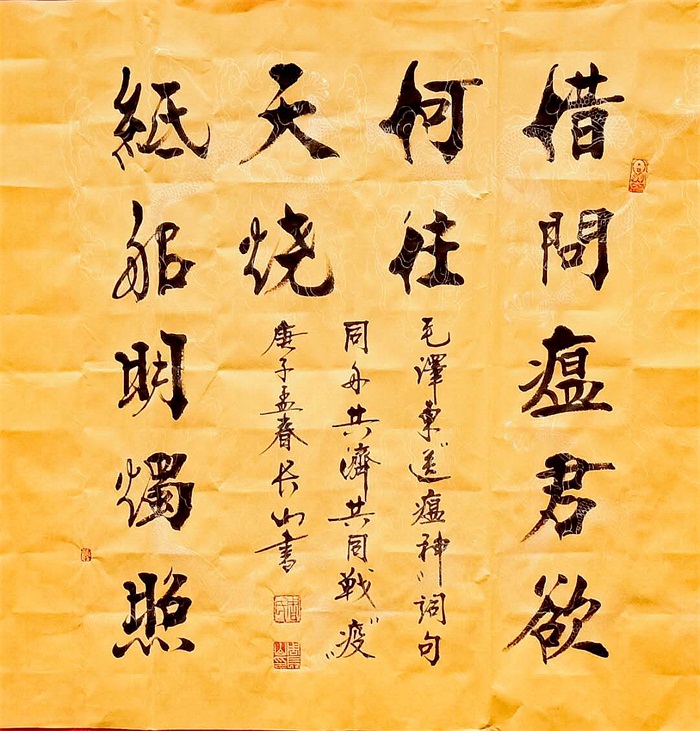 借問瘟君欲
何往
紙船明燭照
天烧
毛澤東“送瘟神”詞句
同舟共濟共同戰“疫”
庚子孟春长山書